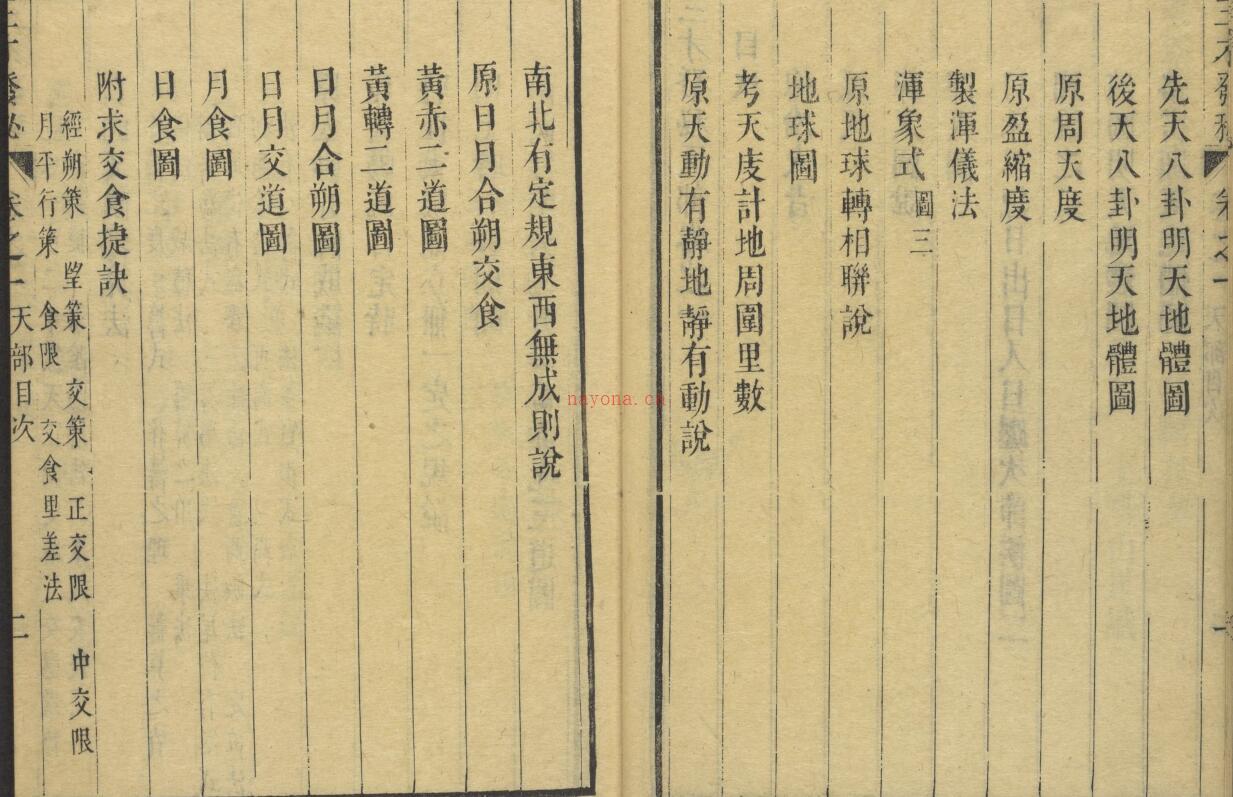 三才發秘 卷之一 一
先天八卦明天地體圖
後天八卦明天地體圖
原周天度
原盈縮度
製渾儀法
渾象式圖三
原地球轉相聯說
地球圖
考天度計地周圍里數
原天動有靜地靜有動說
南北有定規東西無成則說
原日月合朔交食
黃赤二道圖
黃轉二道圖
日月合朔圖
日月交道圖
月食圖
日食圖
附求交食捷訣
經朔策 望策 交策 正交限 中交限
月平行策 食限 交食里差法
三才發秘 卷之一 天部目次 二
nayona.cn